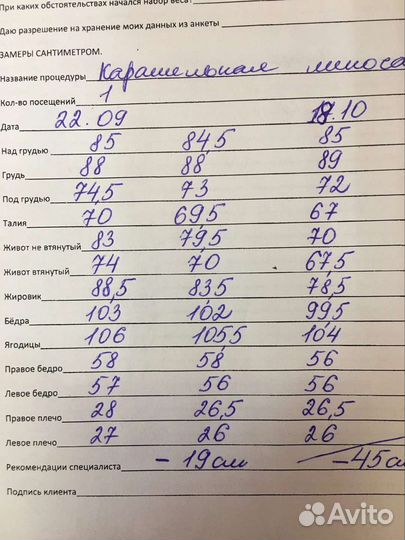 При каких обстоятельствах начался набор веса?
Даю разрешение на хранение моих данных из анкеты
ЗАМЕРЫ САНТИМЕТРОМ.
Название процедуры Карамельная липоса
Кол-во посещений 1
Дата 22.09 17.10
Над грудью 85 84,5 85
Грудь 88 88 89
Под грудью 74,5 73 72
Талия 70 69,5 67
Живот не втянутый 83 79,5 70
Живот втянутый 74 70 67,5
Жировик 88,5 83,5 78,5
Бёдра 103 102 99,5
Ягодицы 106 105,5 104
Правое бедро 58 58 56
Левое бедро 57 56 56
Правое плечо 28 26,5 26,5
Левое плечо 27 26 26
Рекомендации специалиста - 19см -45см
Подпись клиента
Avito